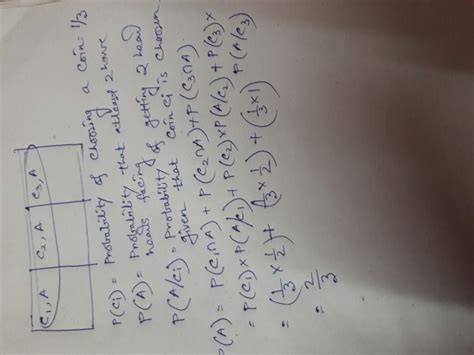 C1, A C2, A C3, A
P(Ci) = Probability of choosing a coin = 1/3
P(A) = Probability that atleast 2 have
heads facing
P(A/Ci) = Probability of getting 2 head
given that coin Ci is choosen
P(A) = P(C1∩A) + P(C2∩A) + P(C3∩A)
= P(C1) × P(A/C1) + P(C2) × P(A/C2) + P(C3) × P(A/C3)
= (1/3 × 1/2) + (1/3 × 1/2) + (1/3 × 1)
= 2/3